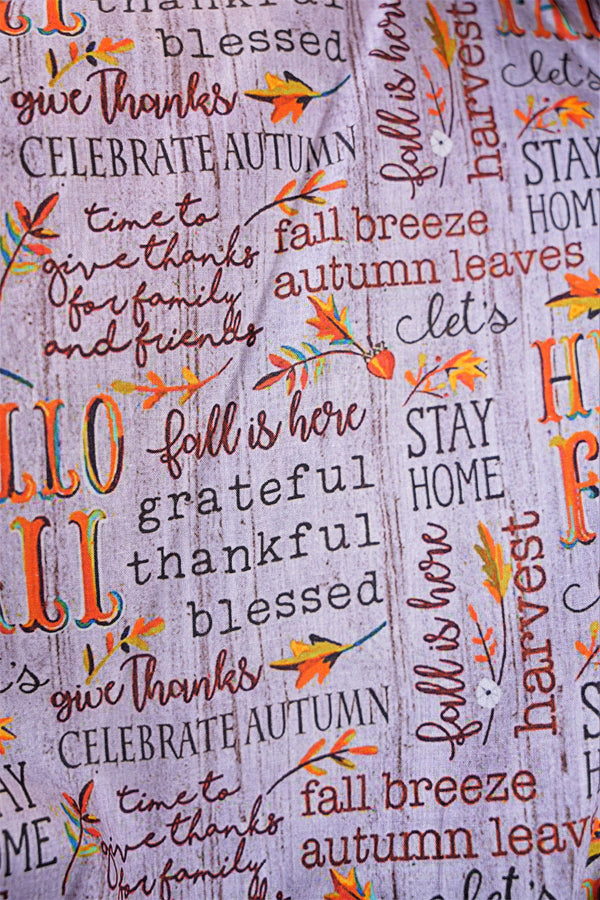 thankful
blessed
give Thanks
CELEBRATE AUTUMN
fall is here
harvest
let's
STAY
HOME
time to
give thanks
for family
and friends
fall breeze
autumn leaves
let's
STAY
HOME
fall is here
grateful
thankful
blessed
give Thanks
CELEBRATE AUTUMN
fall is here
harvest
time to
give thanks
for family
fall breeze
autumn leav
let's